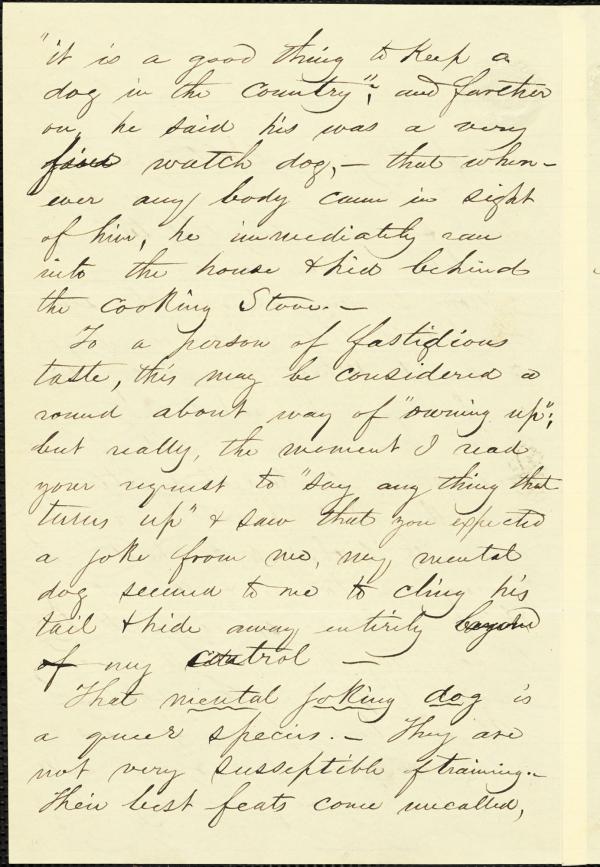 "it is a good thing to keep a
dog in the country"; and farther
on, he said his was a very
watch dog, — that when-
ever any body came in sight
of him, he immediately ran
into the house & hid behind
the cooking Stove. —
To a person of fastidious
taste, this may be considered a
round about way of "owning up";
but really, the moment I read
your request to "say any thing that
turns up" & saw that you expected
a joke from me, my mental
dog seemed to me to cling his
tail & hide away entirely beyond
of my control —
That mental joking dog is
a queer species. — They are
not very susseptible of training. —
Their best feats come uncalled,